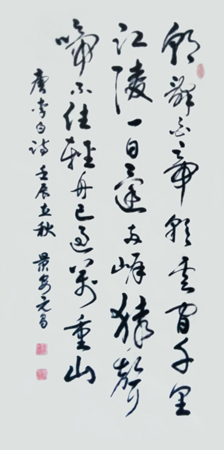 朝辭白帝彩雲間千里
江陵一日還兩岸猿聲
啼不住輕舟已過萬重山
唐李白詩壬辰立秋